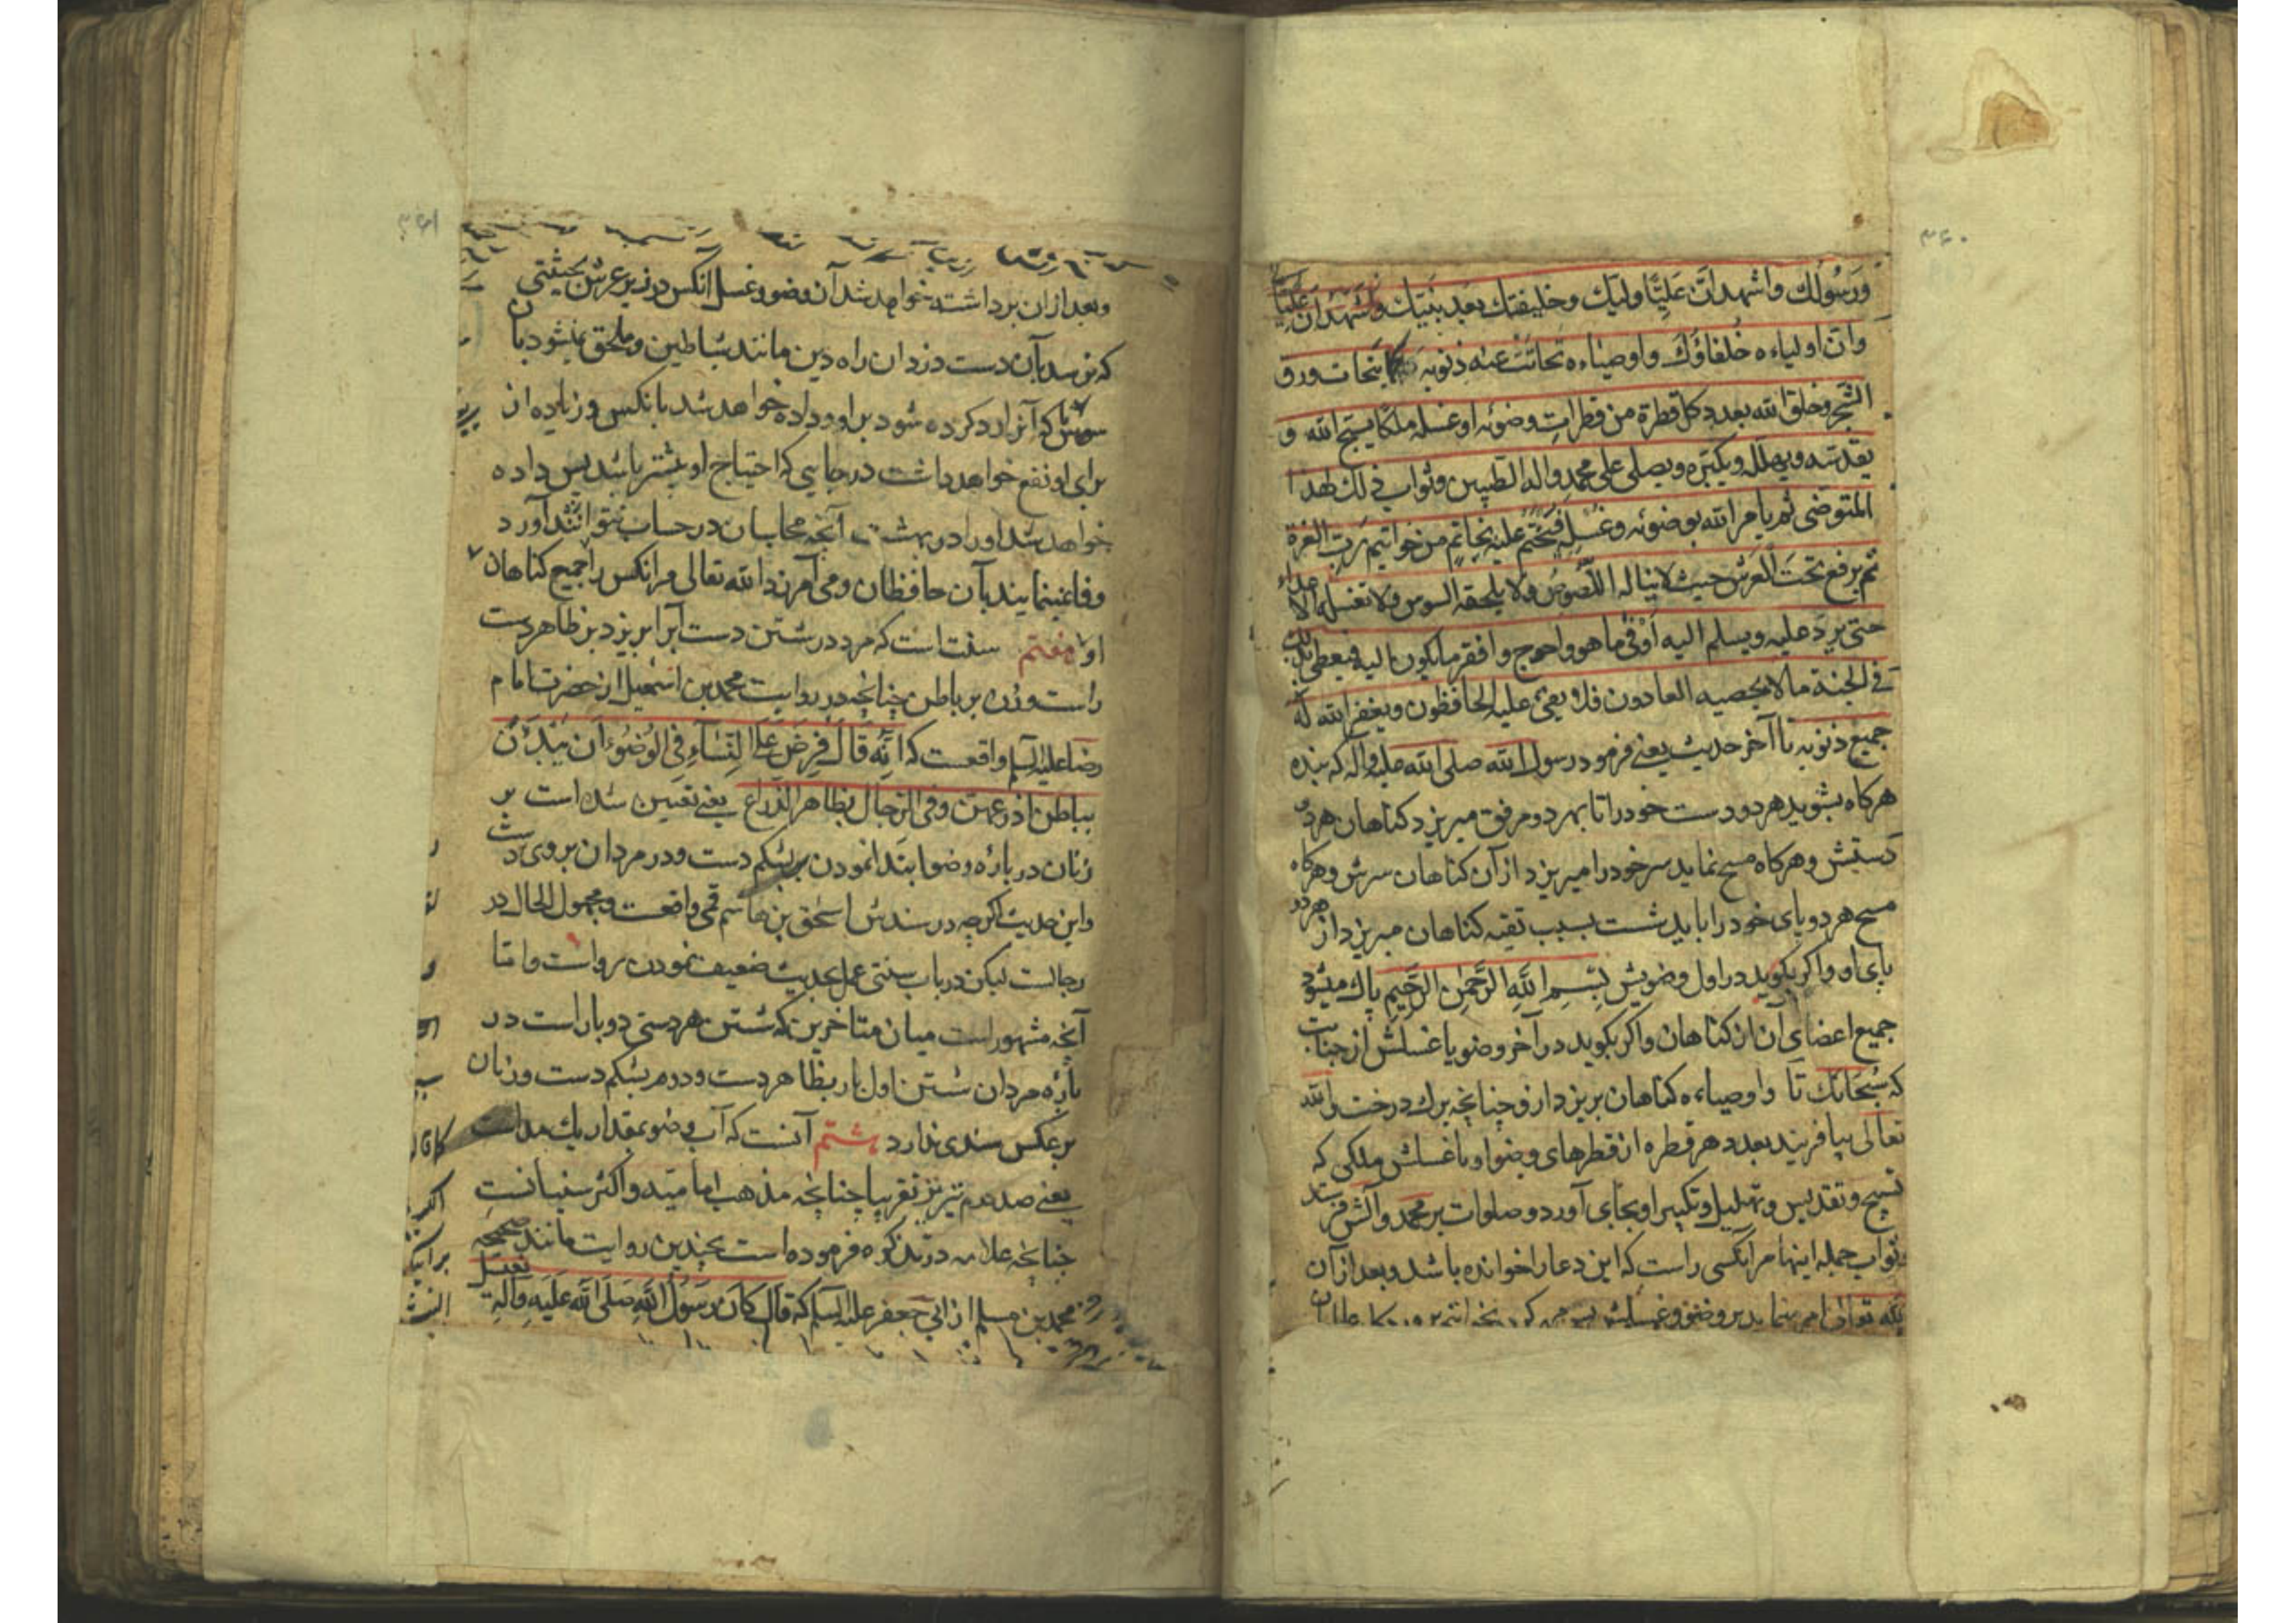 ۳۶۰
وَرَسُولك واشهد انّ عَلِيًّا وليّك وخليفتك بعد نبيّك
وانّ اولياءه خُلفاؤك واوصياءه تحاتّت عنه ذنوبه كما يتحات ورق
الشجر وخلق الله بعدد كل قطرة من قطرات وضوئه او غسله ملكا يسبح الله و
يقدسه ويهلله ويكبّره ويصلى على محمد واله الطيبين وثواب ذلك لهذا
المتوضى ثم يامر الله بوضوئه وغسله فيختم عليه بخاتم من خواتيم رب العزة
ثم يرفع تحت العرش حيث لا يناله اللّصوص ولا يلحقه السوس
حتى يردّ عليه ويسلم اليه اوفى ما هو واحوج وافقر ما يكون اليه فيعطى بذلك
فى الجنة مالا يحصيه العادون فلا يعى عليه الحافظون ويغفر الله له
جميع ذنوبه تا آخر حديث يعنى فرمود رسول الله صلى الله عليه واله كه بنده
هركاه بشويد هر دو دست خود را تا بهر دو مرفق ميريزد كناهان هر دو
دستش وهركاه مسح نمايد سر خود را ميريزد از آن كناهان سرش وهركاه
مسح هر دو پاى خود را يا بديشست بسبب تقيه كناهان ميريزد از هر دو
پاى او واكر بكويد در اول وضويش بِسْمِ اللهِ الرَّحْمٰنِ الرَّحِيمِ پاك ميشود
جميع اعضاى آن از كناهان واكر بكويد در آخر وضو يا غسلش از جنابت
كه سُبحانك تا واوصياءه كناهان بريزد ازو چنانچه برك درخت والله
تعالى بيافريند بعدد هر قطره از قطرهاى وضو او يا غسلش ملكى كه
تسبيح وتقديس وتهليل وتكبير او بجاى آورد وصلوات بر محمد وآلش فرستد
ثواب جمله اينها مر انكسى راست كه اين دعا را خوانده باشد وبعد از آن
۳۶۱
وبعد از ان برداشته خواهد شد آن وضو وغسل آنكس در زير عرش بحيثيتى
كه نرسد بآن دست دزدان راه دين مانند شياطين وملحق نميشود بآن
سوس تا كه آنرا رد كرده شود براو وداده خواهد شد بانكس وزياده از
براى او نفع خواهد داشت در جايى كه احتياج او بيشتر باشد پس داده
خواهد شد او را در بهشت آنچه محاسبان در حساب نتوانند آورد
وفا نمينمايند بآن حافظان ومى آمرزد الله تعالى مر انكس را جميع كناهان
او را هفتم سنت است كه مرد در شستن دست آب را بريزد بر ظاهر دست
راست وزن بر باطن چنانچه در روايت محمد بن اسمعيل از حضرت امام
رضا عليه السلم واقعست كه انّه قال فرض على النِّسَاءِ فى الوُضُوءِ ان يَبْدَأْنَ
بباطن اذرعهن وفى الرّجال بظاهر الذراع يعنى تعيين شده است بر
زنان در باره وضو ابتدا نمودن بر شكم دست ودر مردان بر پشت
واين حديث اكرچه در سندش اسحق بن هاشم قمى واقعست ومجهول الحال در
رجالست ليكن در باب سنتى عمل بحديث ضعيف نمودن رواست واما
آنچه مشهور است ميان متاخرين كه شستن هر دستى دو بار است در
باره مردان شستن اول بار بظاهر دست ودوم بشكم دست وزنان
بر عكس سندى ندارد هشتم آنست كه آب وضو بمقدار يك مد است
يعنى صد درم تبريز تقريبا چنانچه مذهب اماميّه واكثر سنيانست
چنانچه علامه در تذكره فرموده است بچندين روايت مانند صحيحه
محمد بن مسلم از ابى جعفر عليه السلم كه قال كان رَسُول الله صَلّى الله عَلَيه وآلِهِ